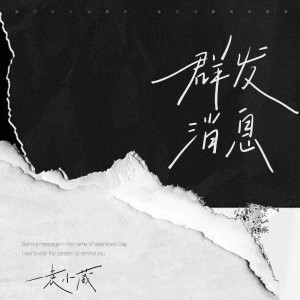 群发
消息
Send a message in the name of Valentine's Day
How to edit the content to remind you
袁小葳